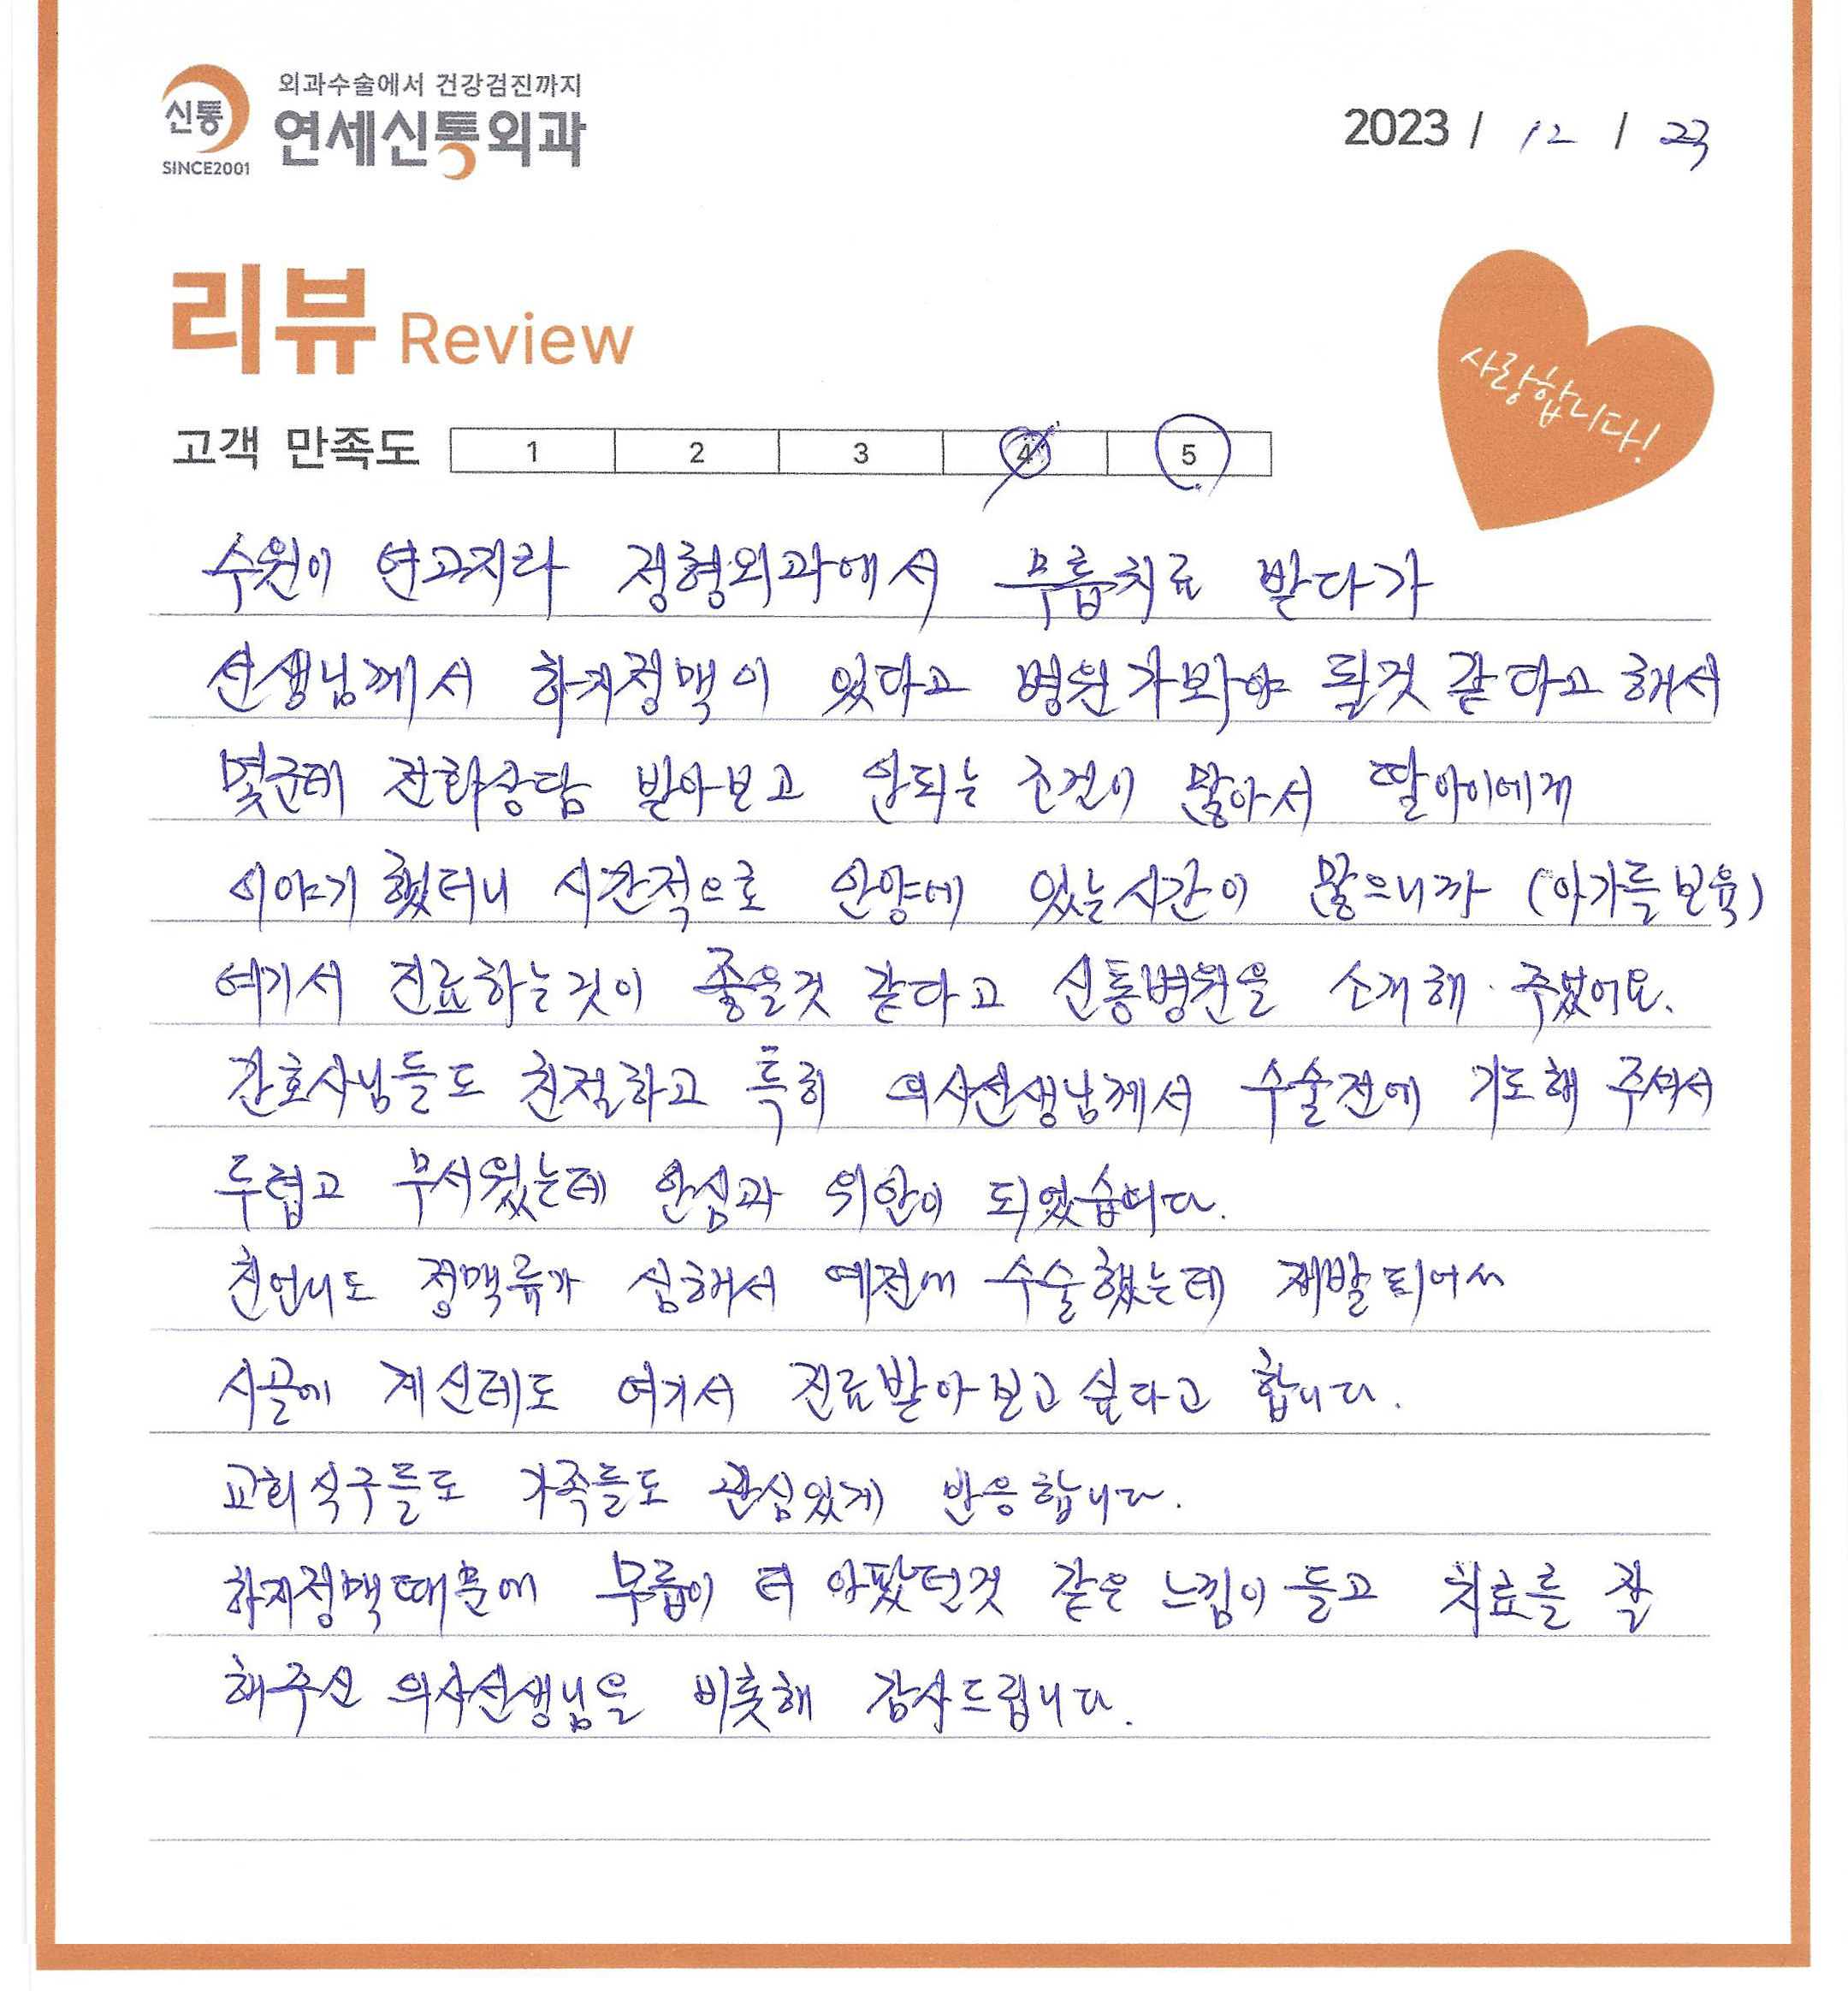 신통
SINCE2001
외과수술에서 건강검진까지
연세신통외과
2023 / 12 / 23
리뷰 Review
사랑합니다!
고객 만족도 1 2 3 4 5
수원이 연고지라 정형외과에서 무릎치료 받다가
선생님께서 하지정맥이 있다고 병원가봐야 될것 같다고 해서
몇군데 전화상담 받아보고 안되는 조건이 많아서 딸아이에게
이야기 했더니 시간적으로 안양에 있는시간이 많으니까 (아가를 보육)
여기서 진료하는것이 좋을것 같다고 신통병원을 소개해 주었어요.
간호사님들도 친절하고 특히 의사선생님께서 수술전에 기도해 주셔서
두렵고 무서웠는데 안심과 위안이 되었습니다.
친언니도 정맥류가 심해서 예전에 수술했는데 재발되어서
시골에 계신데도 여기서 진료받아보고싶다고 합니다.
교회식구들도 가족들도 관심있게 반응합니다.
하지정맥때문에 무릎이 더 아팠던것 같은 느낌이 들고 치료를 잘
해주신 의사선생님을 비롯해 감사드립니다.